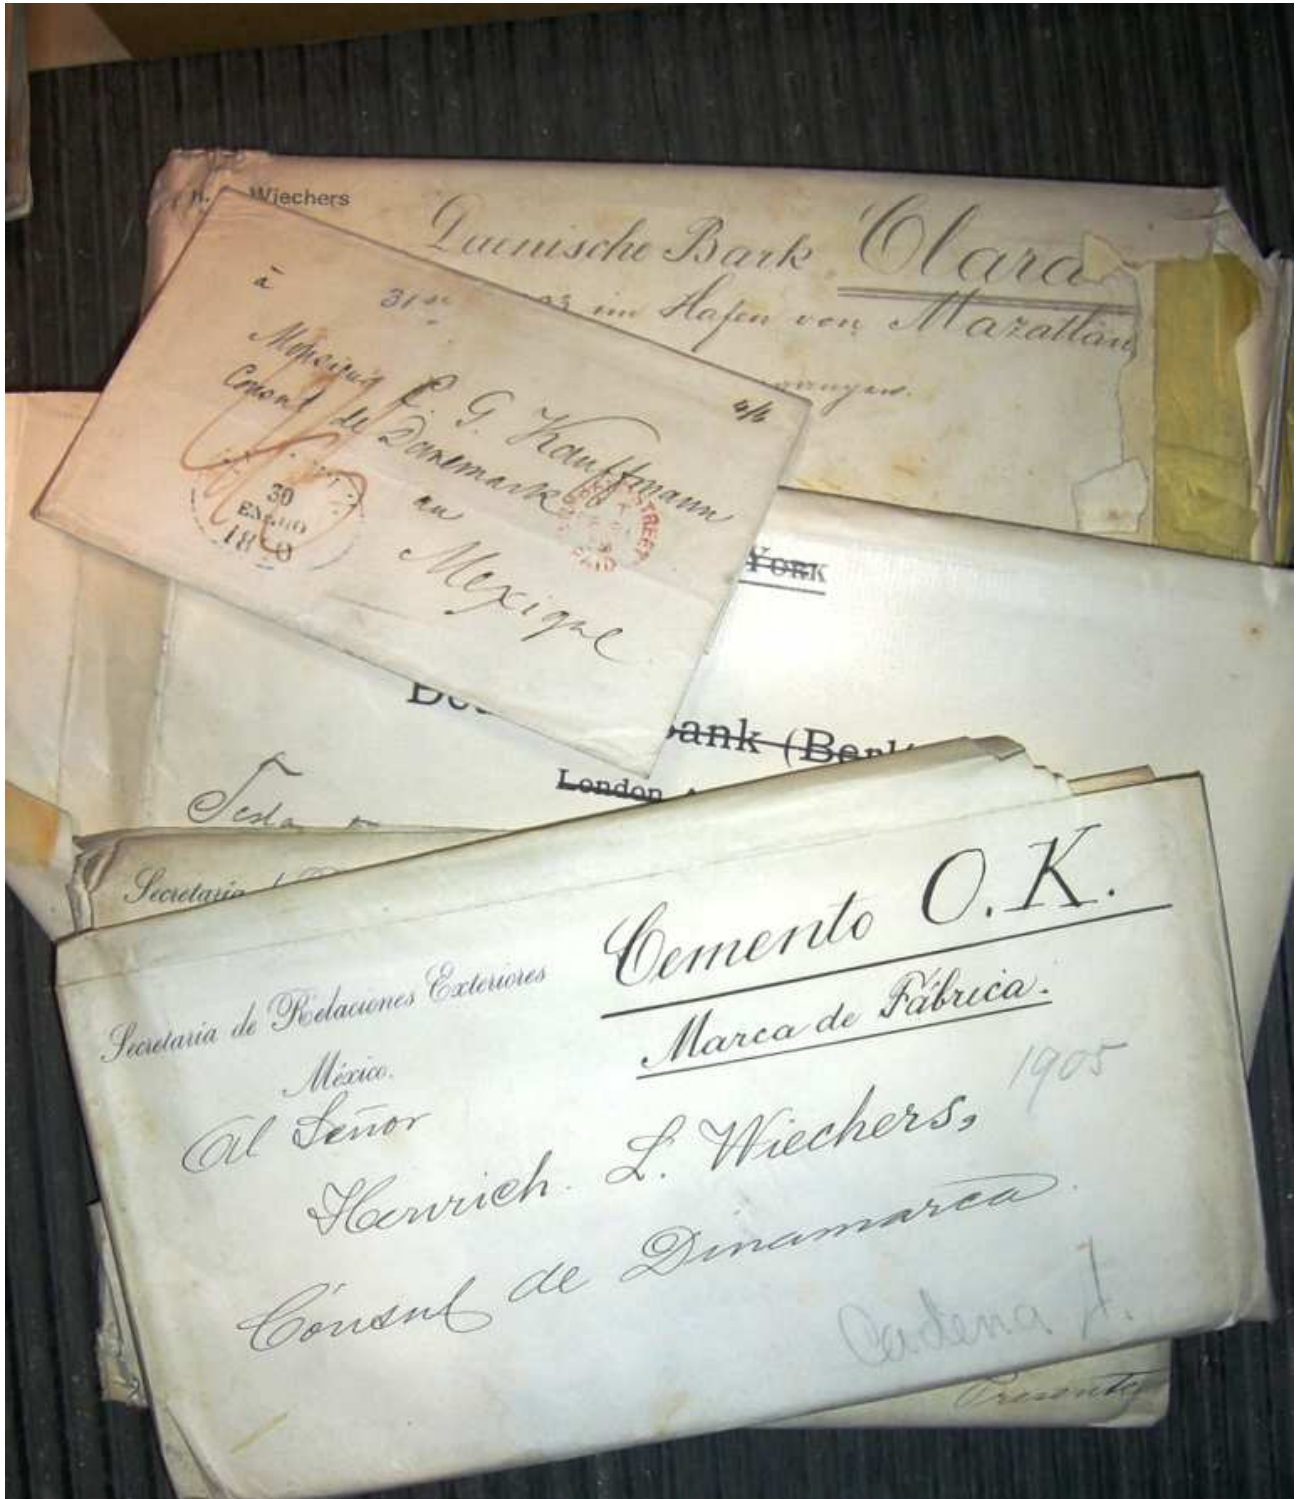 Wiechers
Daenische Bark Clara
im Hafen von Mazatlan
à
31st
Monsieur
C. G. Kauffmann
Consul de Danemark
au
Mexique
4/4
30
ENERO
18
STREET
PAID
York
ank (Berl
London
Secretaria
Secretaria de Relaciones Exteriores
México.
Cemento O. K.
Marca de Fábrica.
1905
Al Señor
Henrich. L. Wiechers,
Cónsul de Dinamarca.
Cadena
Presente